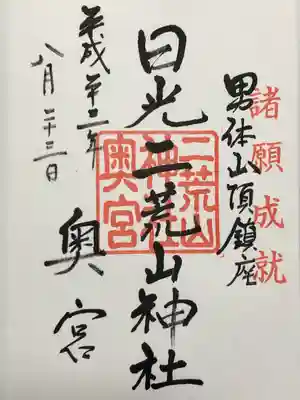 諸願成就
男体山頂鎮座
日光二荒山神社
二荒山
神社
奥宮
奥宮
平成廿二年
八月二十三日